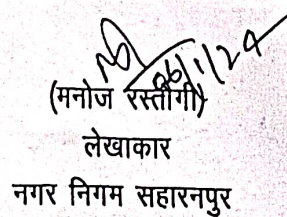 06/1/24
(मनोज रस्तौगी)
लेखाकार
नगर निगम सहारनपुर